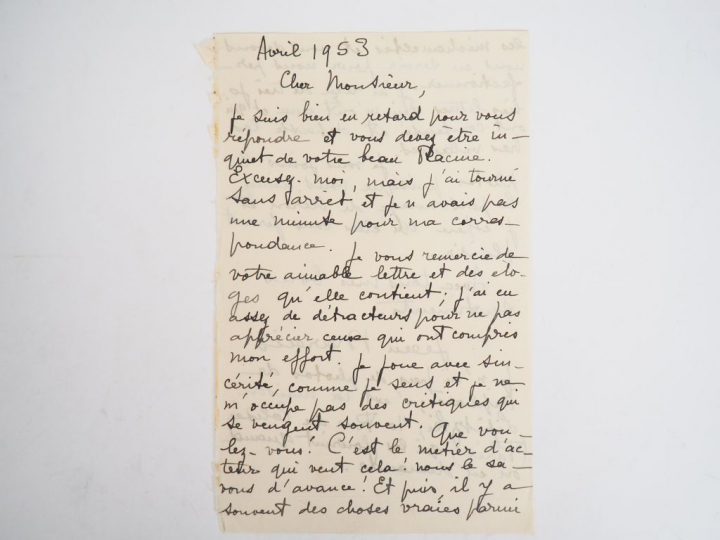 Avril 1953
Cher Monsieur,
Je suis bien en retard pour vous
répondre et vous devez être in-
quiet de votre beau Racine.
Excusez-moi, mais j'ai tourné
sans arrêt et je n'avais pas
une minute pour ma corres-
pondance. Je vous remercie de
votre aimable lettre et des élo-
ges qu'elle contient; j'ai eu
assez de détracteurs pour ne pas
apprécier ceux qui ont compris
mon effort. Je joue avec sin-
cérité, comme je sens et je ne
m'occupe pas des critiques qui
se vengent souvent. Que vou-
lez-vous! C'est le métier d'ac-
teur qui veut cela. nous le sa-
vons d'avance! Et puis, il y a
souvent des choses vraies parmi